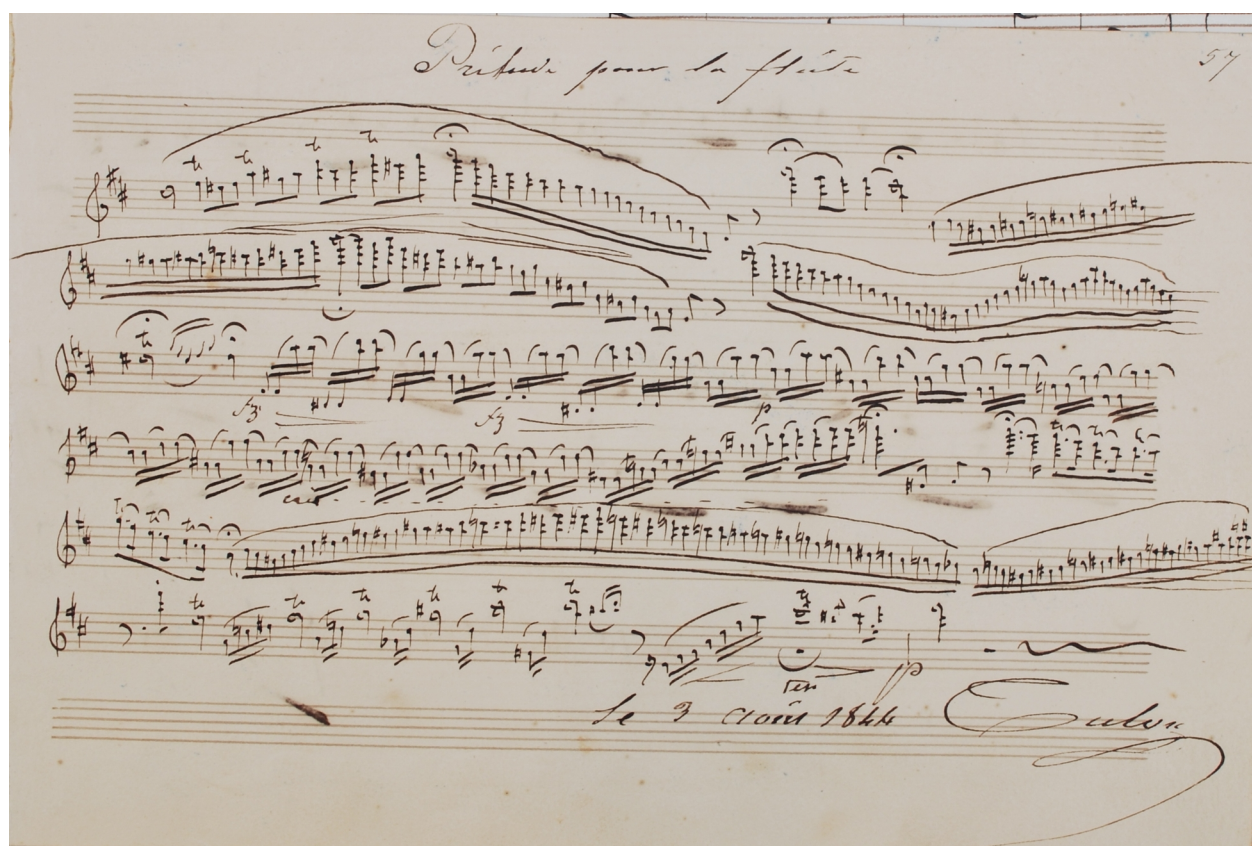 Prélude pour la flûte
57
fz
fz
p
cres
ten
p
le 3 août 1844
Tulou